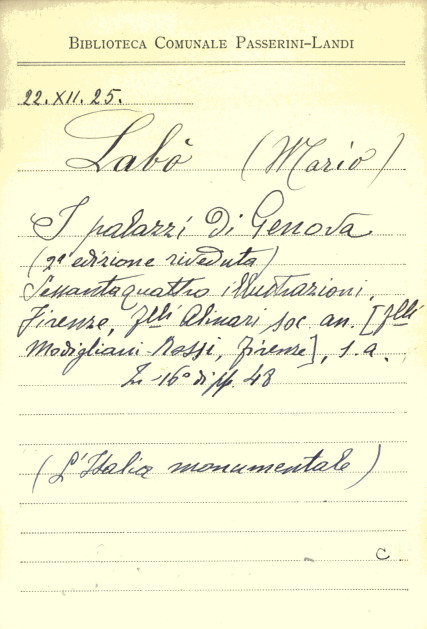 BIBLIOTECA COMUNALE PASSERINI-LANDI
22.XII.25.
Labò (Mario)
I palazzi di Genova
(2ª edizione riveduta)
Sessantaquattro illustrazioni.
Firenze, flli Alinari soc. an. [flli
Modigliani Rossi, Firenze], s. a.
16° di pp. 48
(L'Italia monumentale)
C